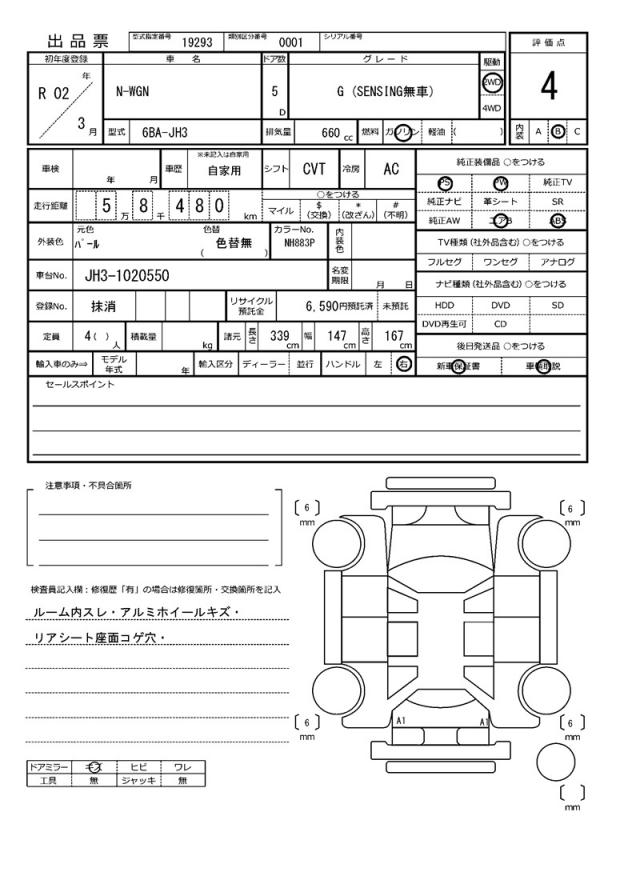 出品票 型式指定番号 19293 類別区分番号 0001 シリアル番号
評価点
初年度登録 車名 ドア数 グレード 駆動
R 02 年 3 月 N-WGN 5 D G (SENSING無車) 2WD 4WD
4
型式 6BA-JH3 排気量 660 cc 燃料 ガソリン 軽油 ( ) 内装 A B C
車検 年 月 車歴 ※未記入は自家用 自家用 シフト CVT 冷房 AC
走行距離 5 万 8 千 4 8 0 km ○をつける
マイル $(交換) *(改ざん) #(不明)
外装色 元色 パール 色替 色替無 ( ) カラーNo. NH883P 内装色
車台No. JH3-1020550 名変期限 月 日
登録No. 抹消 リサイクル預託金 6,590円預託済 未預託
定員 4( )人 積載量 kg 諸元 長さ 339 cm 幅 147 cm 高さ 167 cm
輸入車のみ⇒ モデル年式 年 輸入区分 ディーラー 並行 ハンドル 左 右
純正装備品 ○をつける
PS PW 純正TV
純正ナビ 革シート SR
純正AW エアB ABS
TV種類(社外品含む)○をつける
フルセグ ワンセグ アナログ
ナビ種類(社外品含む)○をつける
HDD DVD SD
DVD再生可 CD
後日発送品 ○をつける
新車保証書 車輌取説
セールスポイント
注意事項・不具合箇所
検査員記入欄：修復歴「有」の場合は修復箇所・交換箇所を記入
ルーム内スレ・アルミホイールキズ・
リアシート座面コゲ穴・
ドアミラー キズ ヒビ ワレ
工具 無 ジャッキ 無
〔 6 〕 mm 〔 6 〕 mm
A1 A1
〔 6 〕 mm 〔 6 〕 mm
〔 〕 mm